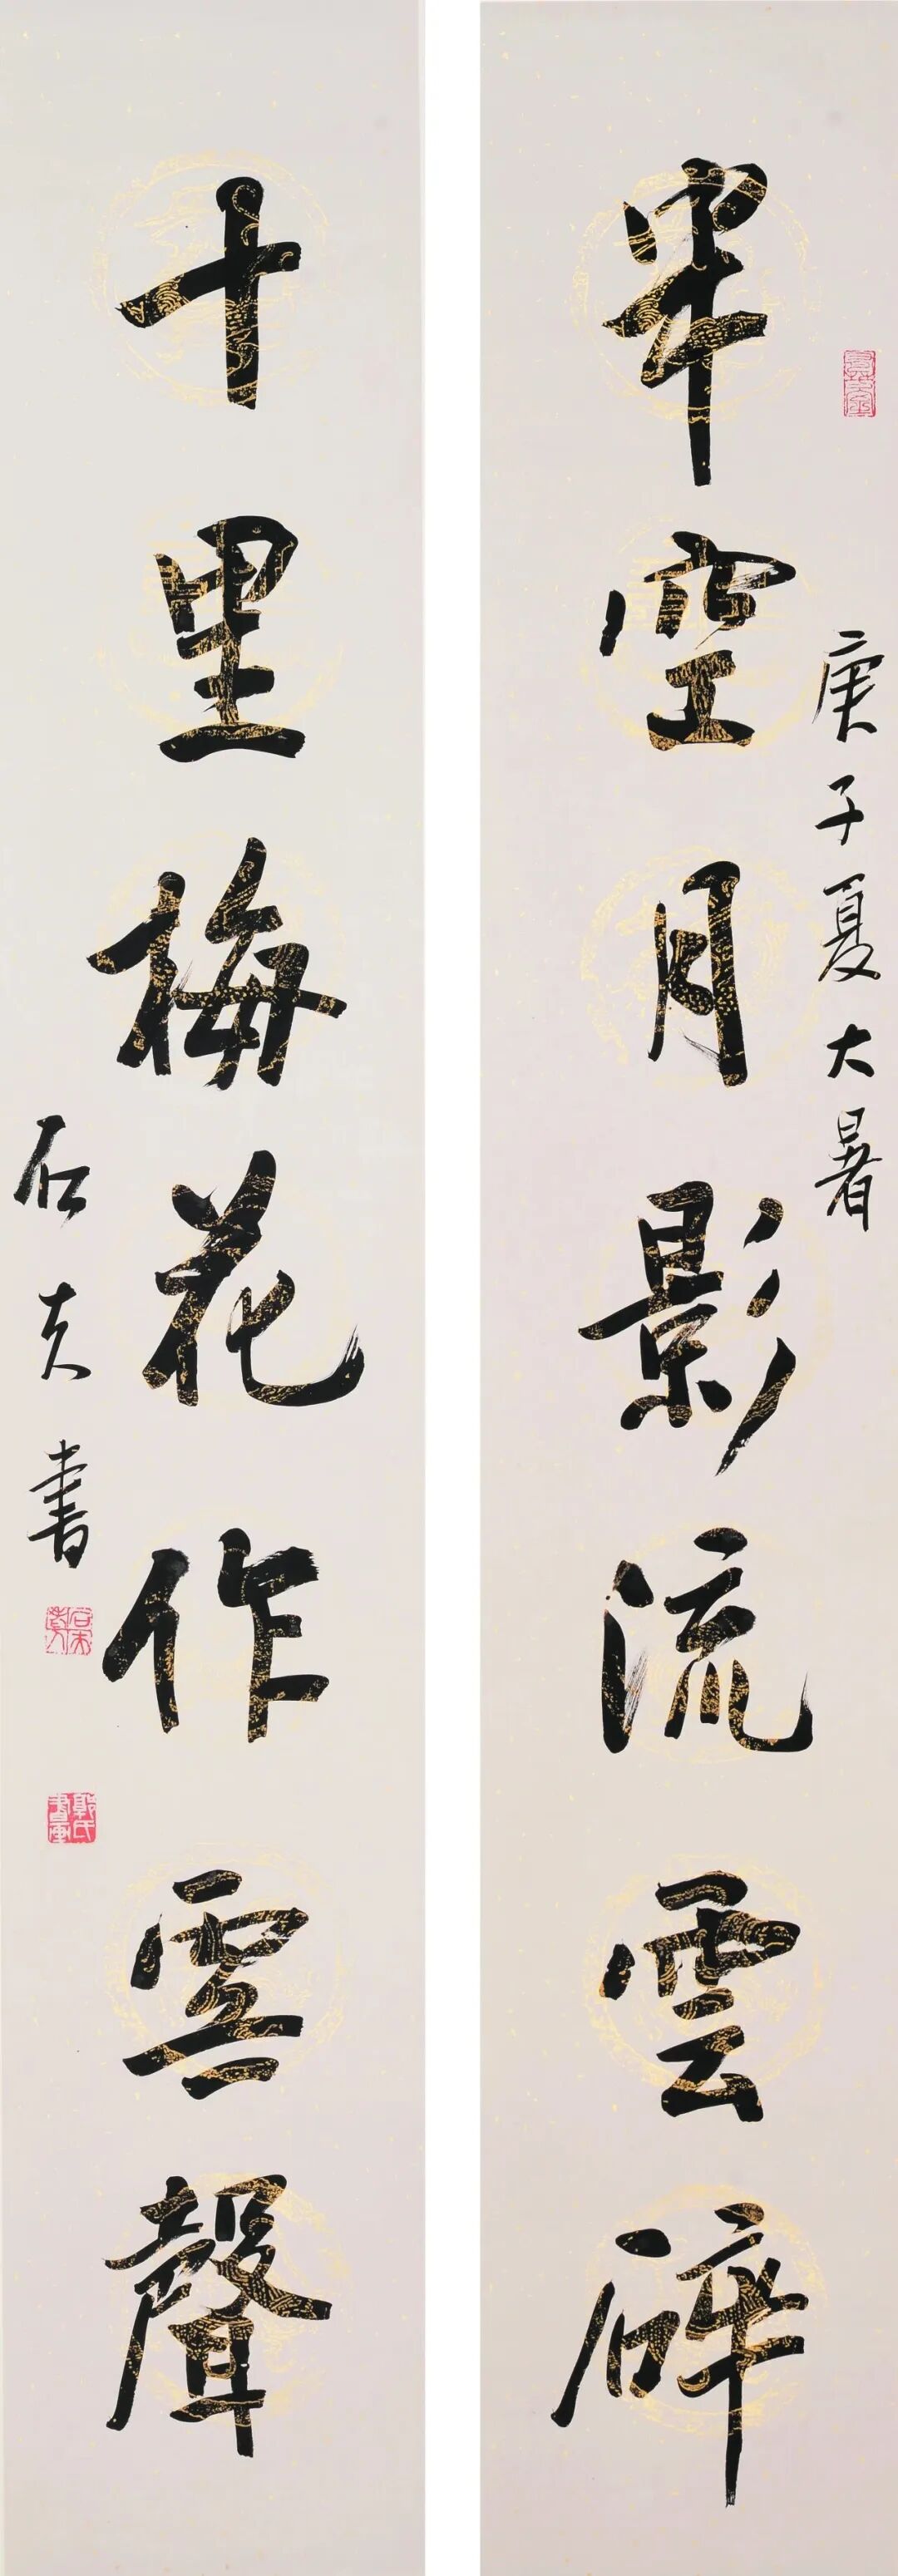 庚子夏大暑
半空月影流雲碎
十里梅花作雪聲
石夫書